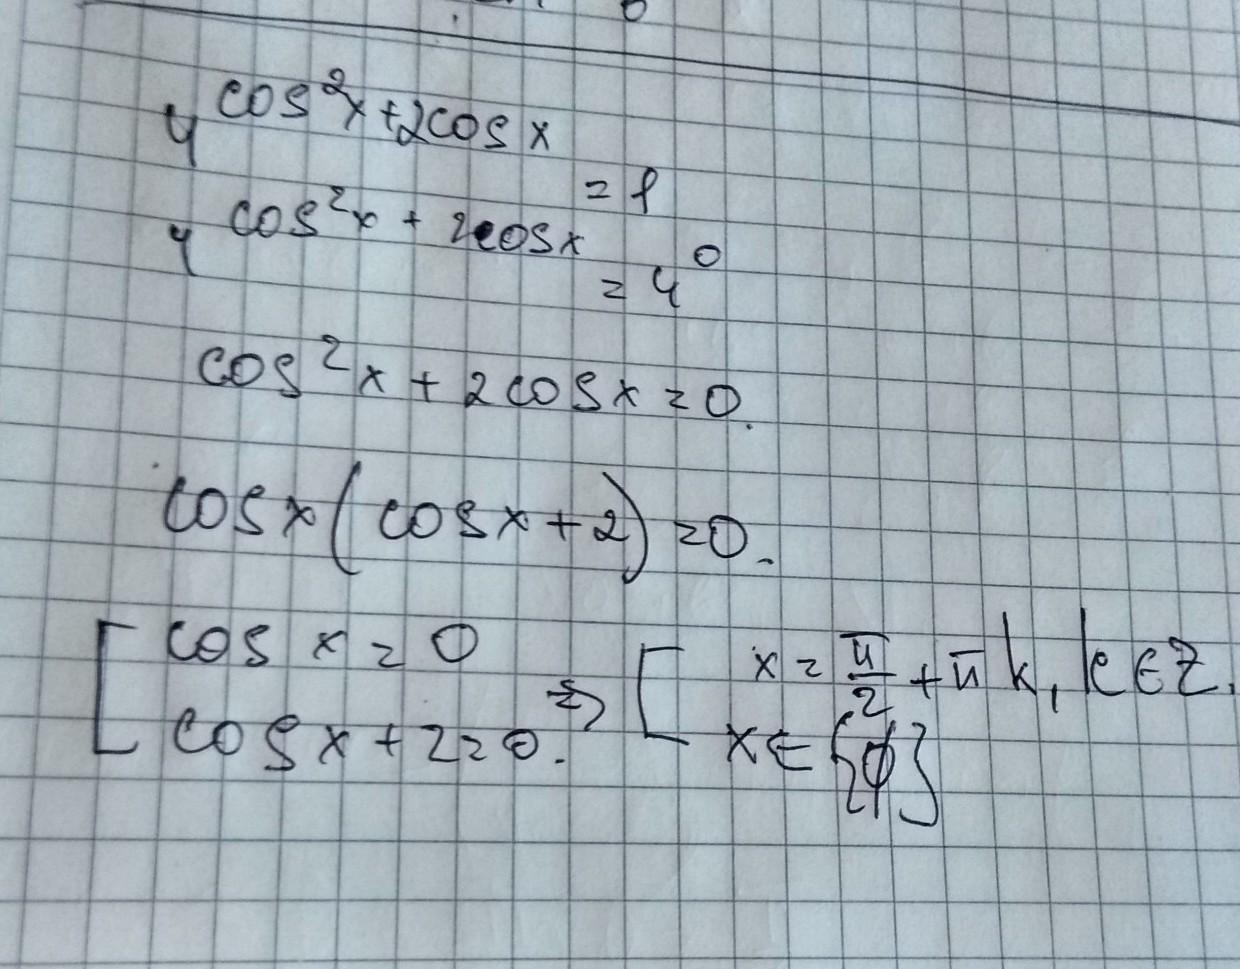 4^(cos²x+2cosx) = 1
4^(cos²x + 2cosx) = 4⁰
cos²x + 2cosx = 0.
cosx(cosx+2) = 0.
[ cosx = 0 ⇒ [ x = π/2 + πk, k∈Z.
cosx + 2 = 0. x ∈ {∅}